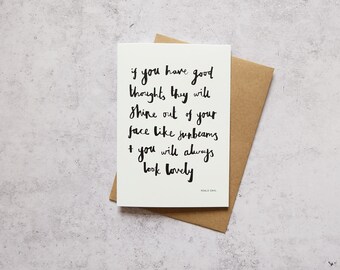 if you have good
thoughts they will
shine out of your
face like sunbeams
+ you will always
look lovely